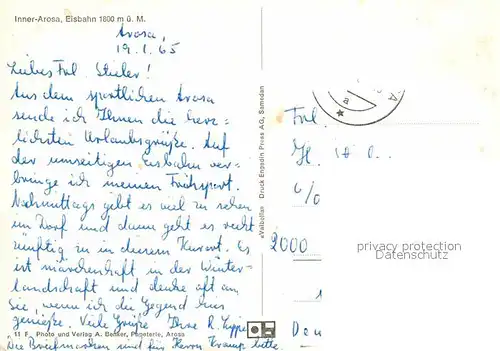 Inner-Arosa, Eisbahn 1800 m ü. M.
Arosa,
19.1.65
Liebes Frl. Stieler!
Aus dem sportlichen Arosa
sende ich Ihnen die herz-
lichsten Urlaubsgrüße. Auf
der umseitigen Eisbahn ver-
bringe ich meinen Frühsport.
Nachmittags gibt es viel zu sehen
im Dorf und dann geht es recht
zünftig zu in diesem Kurort. Es
ist märchenhaft in der Winter-
landschaft und denke oft an
Sie, wenn ich die Gegend hier
genieße. Viele Grüße Ihre R.
11 F Photo und Verlag A. Becker, Papeterie, Arosa
Die Briefmarken sind für Herrn Kramp bitte
«Valbella» Druck Engadin Press AG, Samedan
Frl.
H.
c/o
2000
privacy protection
veikkos.com
1